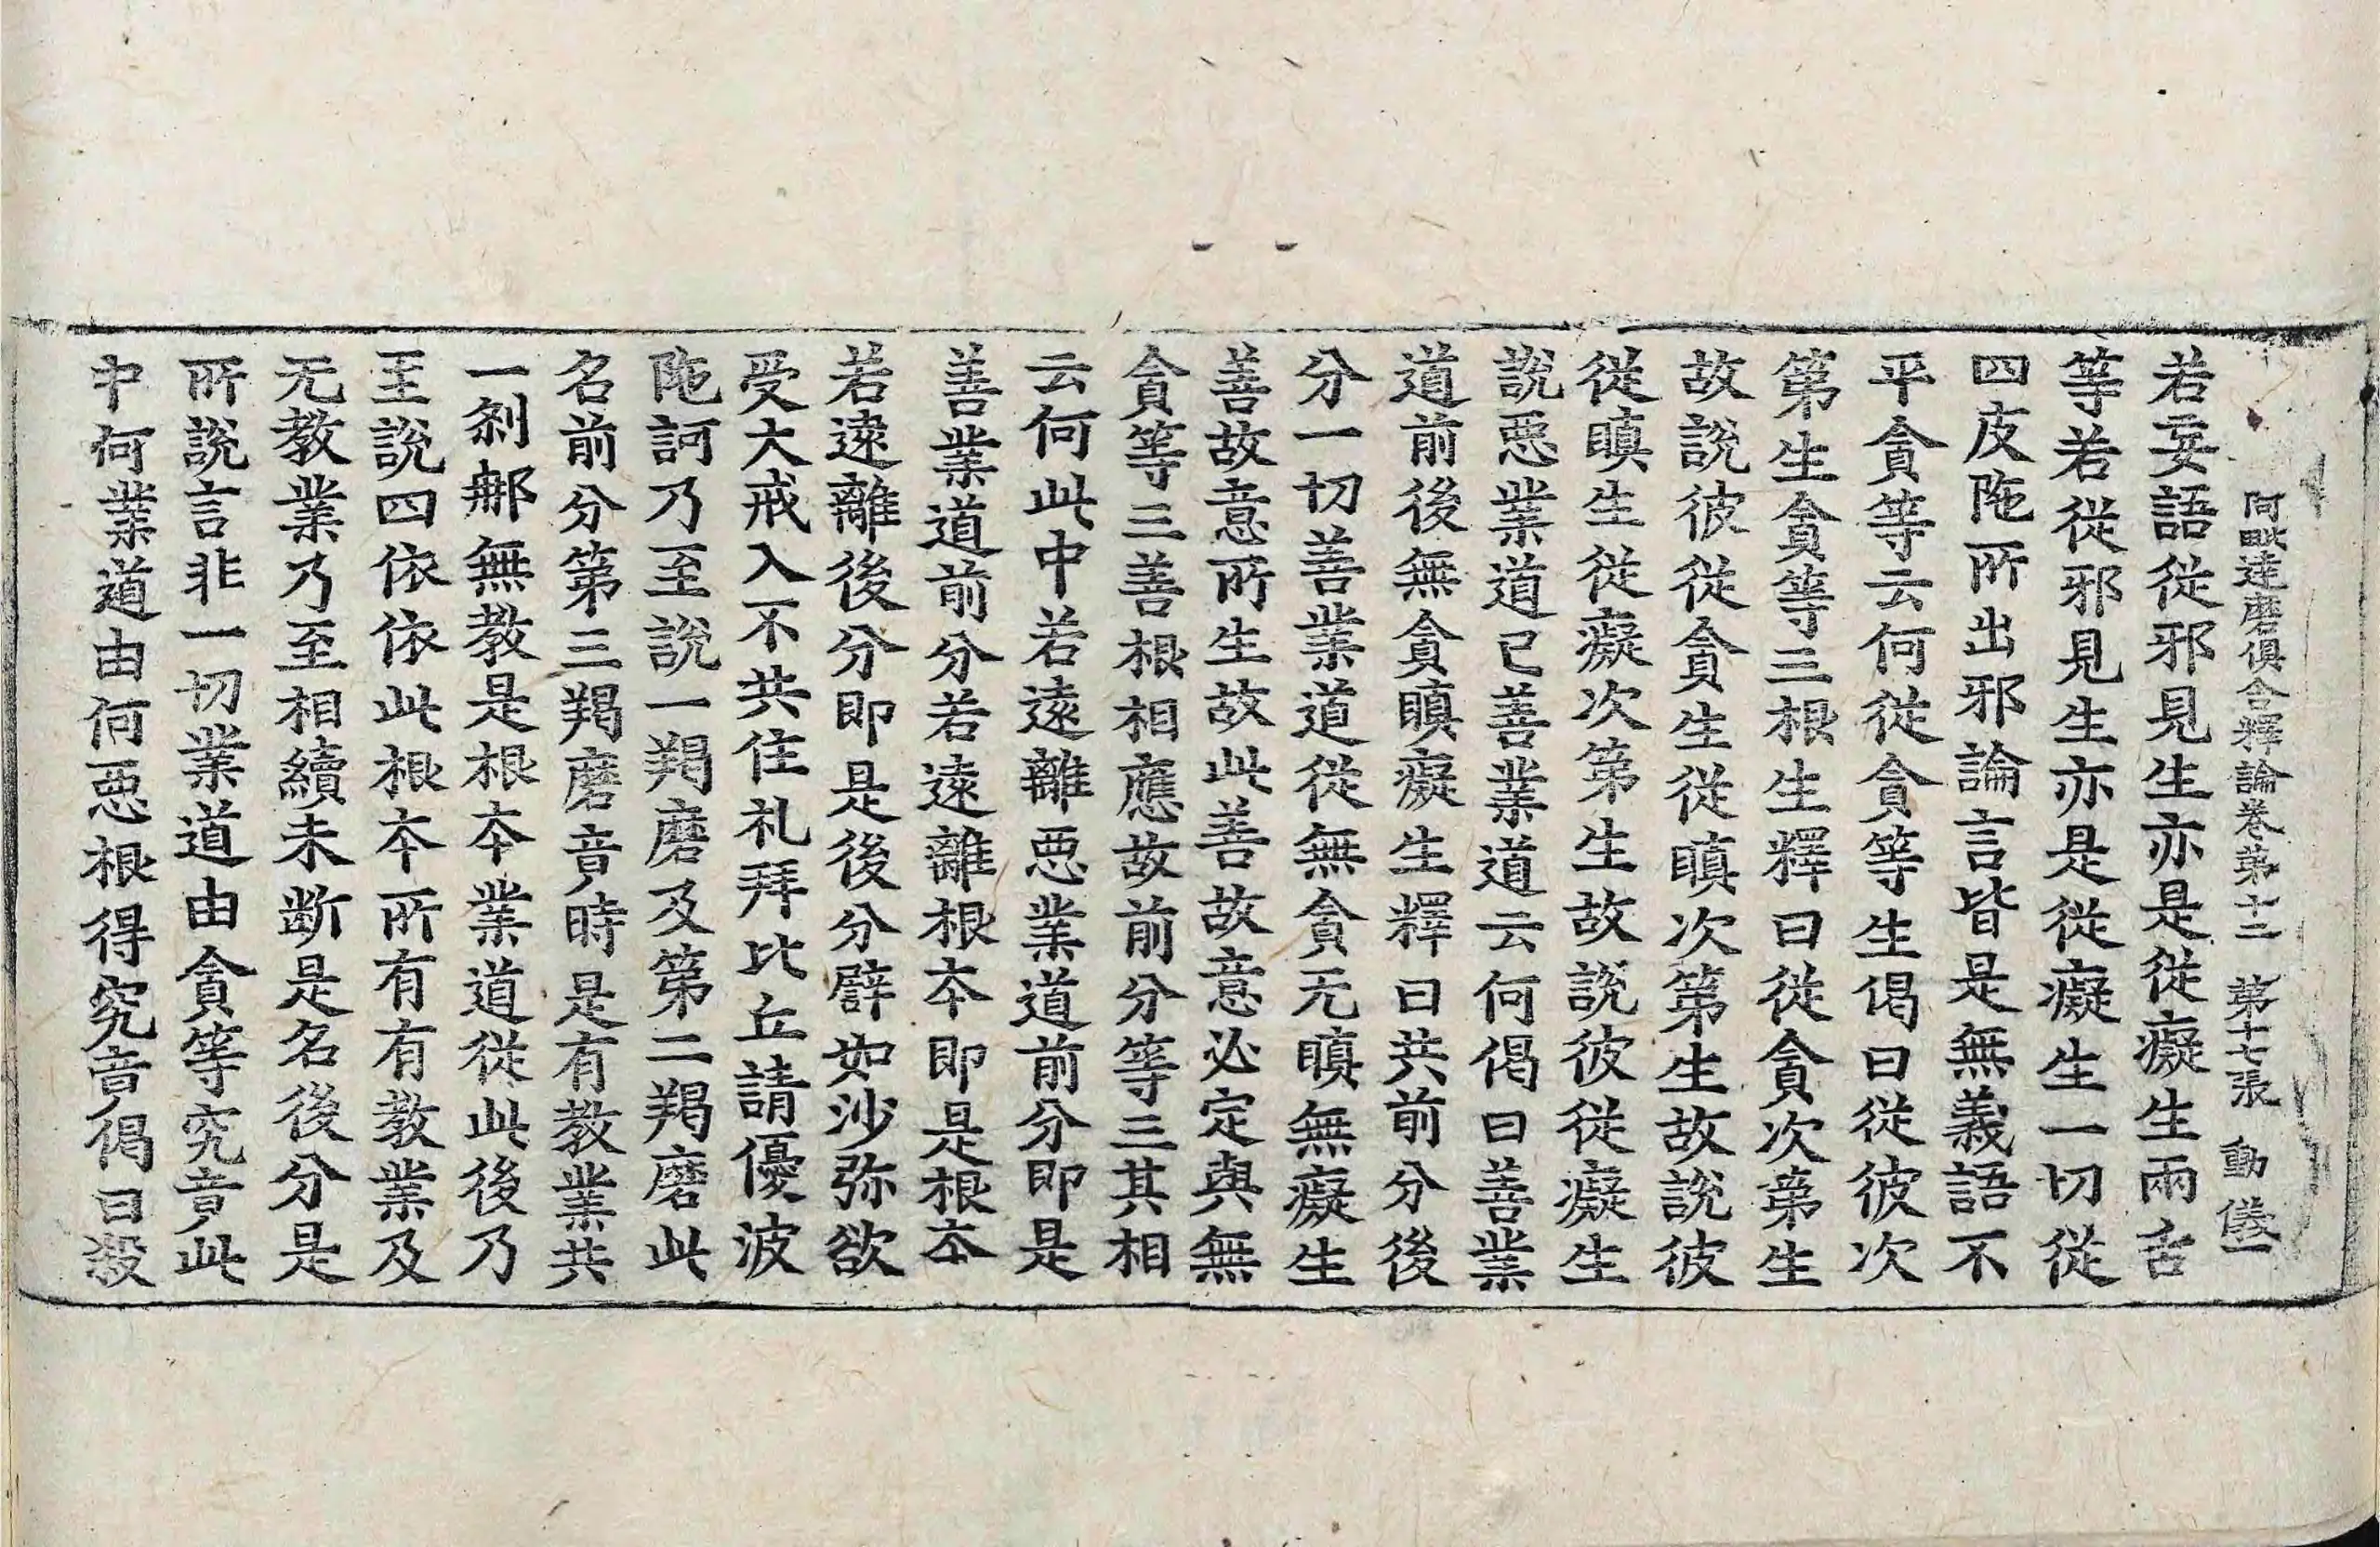 阿毗達磨俱舍釋論卷第十二 第十七張 動
若妄語從邪見生亦是從癡生兩舌
等若從邪見生亦是從癡生一切從
四皮陁所出邪論言皆是無義語不
平貪等云何從貪等生偈曰從彼次
第生貪等三根生釋曰從貪次第生
故說彼從貪生從瞋次第生故說彼
從瞋生從癡次第生故說彼從癡生
說惡業道已善業道云何偈曰善業
道前後無貪瞋癡生釋曰共前分後
分一切善業道從無貪无瞋無癡生
善故意所生故此善故意必定與無
貪等三善根相應故前分等三其相
云何此中若遠離惡業道前分即是
善業道前分若遠離根本即是根本
若遠離後分即是後分譬如沙弥欲
受大戒入不共住礼拜比丘請優波
陁訶乃至說一羯磨及第二羯磨此
名前分第三羯磨竟時是有教業共
一剎那無教是根本業道從此後乃
至說四依依此根本所有有教業及
无教業乃至相續未斷是名後分是
所說言非一切業道由貪等究竟此
中何業道由何惡根得究竟偈曰殺